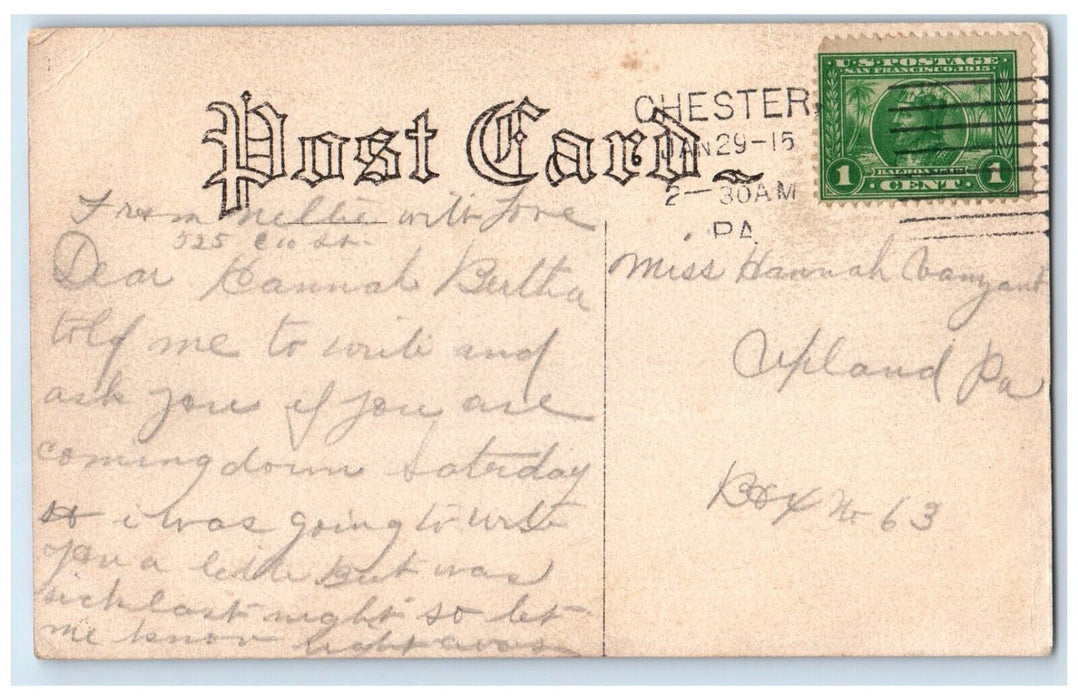 Post Card
CHESTER,
JAN 29-15
2-30AM
PA
U.S. POSTAGE
SAN FRANCISCO, 1915
BALBOA
1 CENT 1
From Nellie with love
525 St.
Dear Hannah Bertha
told me to write and
ask you if you are
coming down saterday
so i was going to write
you a letter But was
sick last night so let
me know right away
Miss Hannah Vanzant
Upland Pa
Box No 63